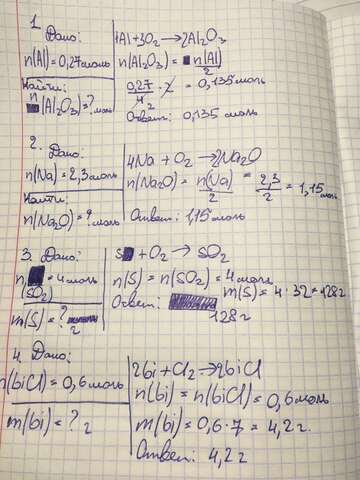 1.
Дано:
n(Al) = 0,27 моль
Найти:
n(Al₂O₃) = ? моль
4Al + 3O₂ → 2Al₂O₃
n(Al₂O₃) = n(Al)/2
0,27/4₂ · 2 = 0,135 моль
Ответ: 0,135 моль
2.
Дано:
n(Na) = 2,3 моль
Найти:
n(Na₂O) = ? моль
4Na + O₂ → 2Na₂O
n(Na₂O) = n(Na)/2 = 2,3/2 = 1,15 моль
Ответ: 1,15 моль
3. Дано:
n(SO₂) = 4 моль
m(S) = ? г
S + O₂ → SO₂
n(S) = n(SO₂) = 4 моль
m(S) = 4 · 32 = 128 г
Ответ: 128 г
4. Дано:
n(biCl) = 0,6 моль
m(bi) = ? г
2bi + Cl₂ → 2biCl
n(bi) = n(biCl) = 0,6 моль
m(bi) = 0,6 · 7 = 4,2 г.
Ответ: 4,2 г